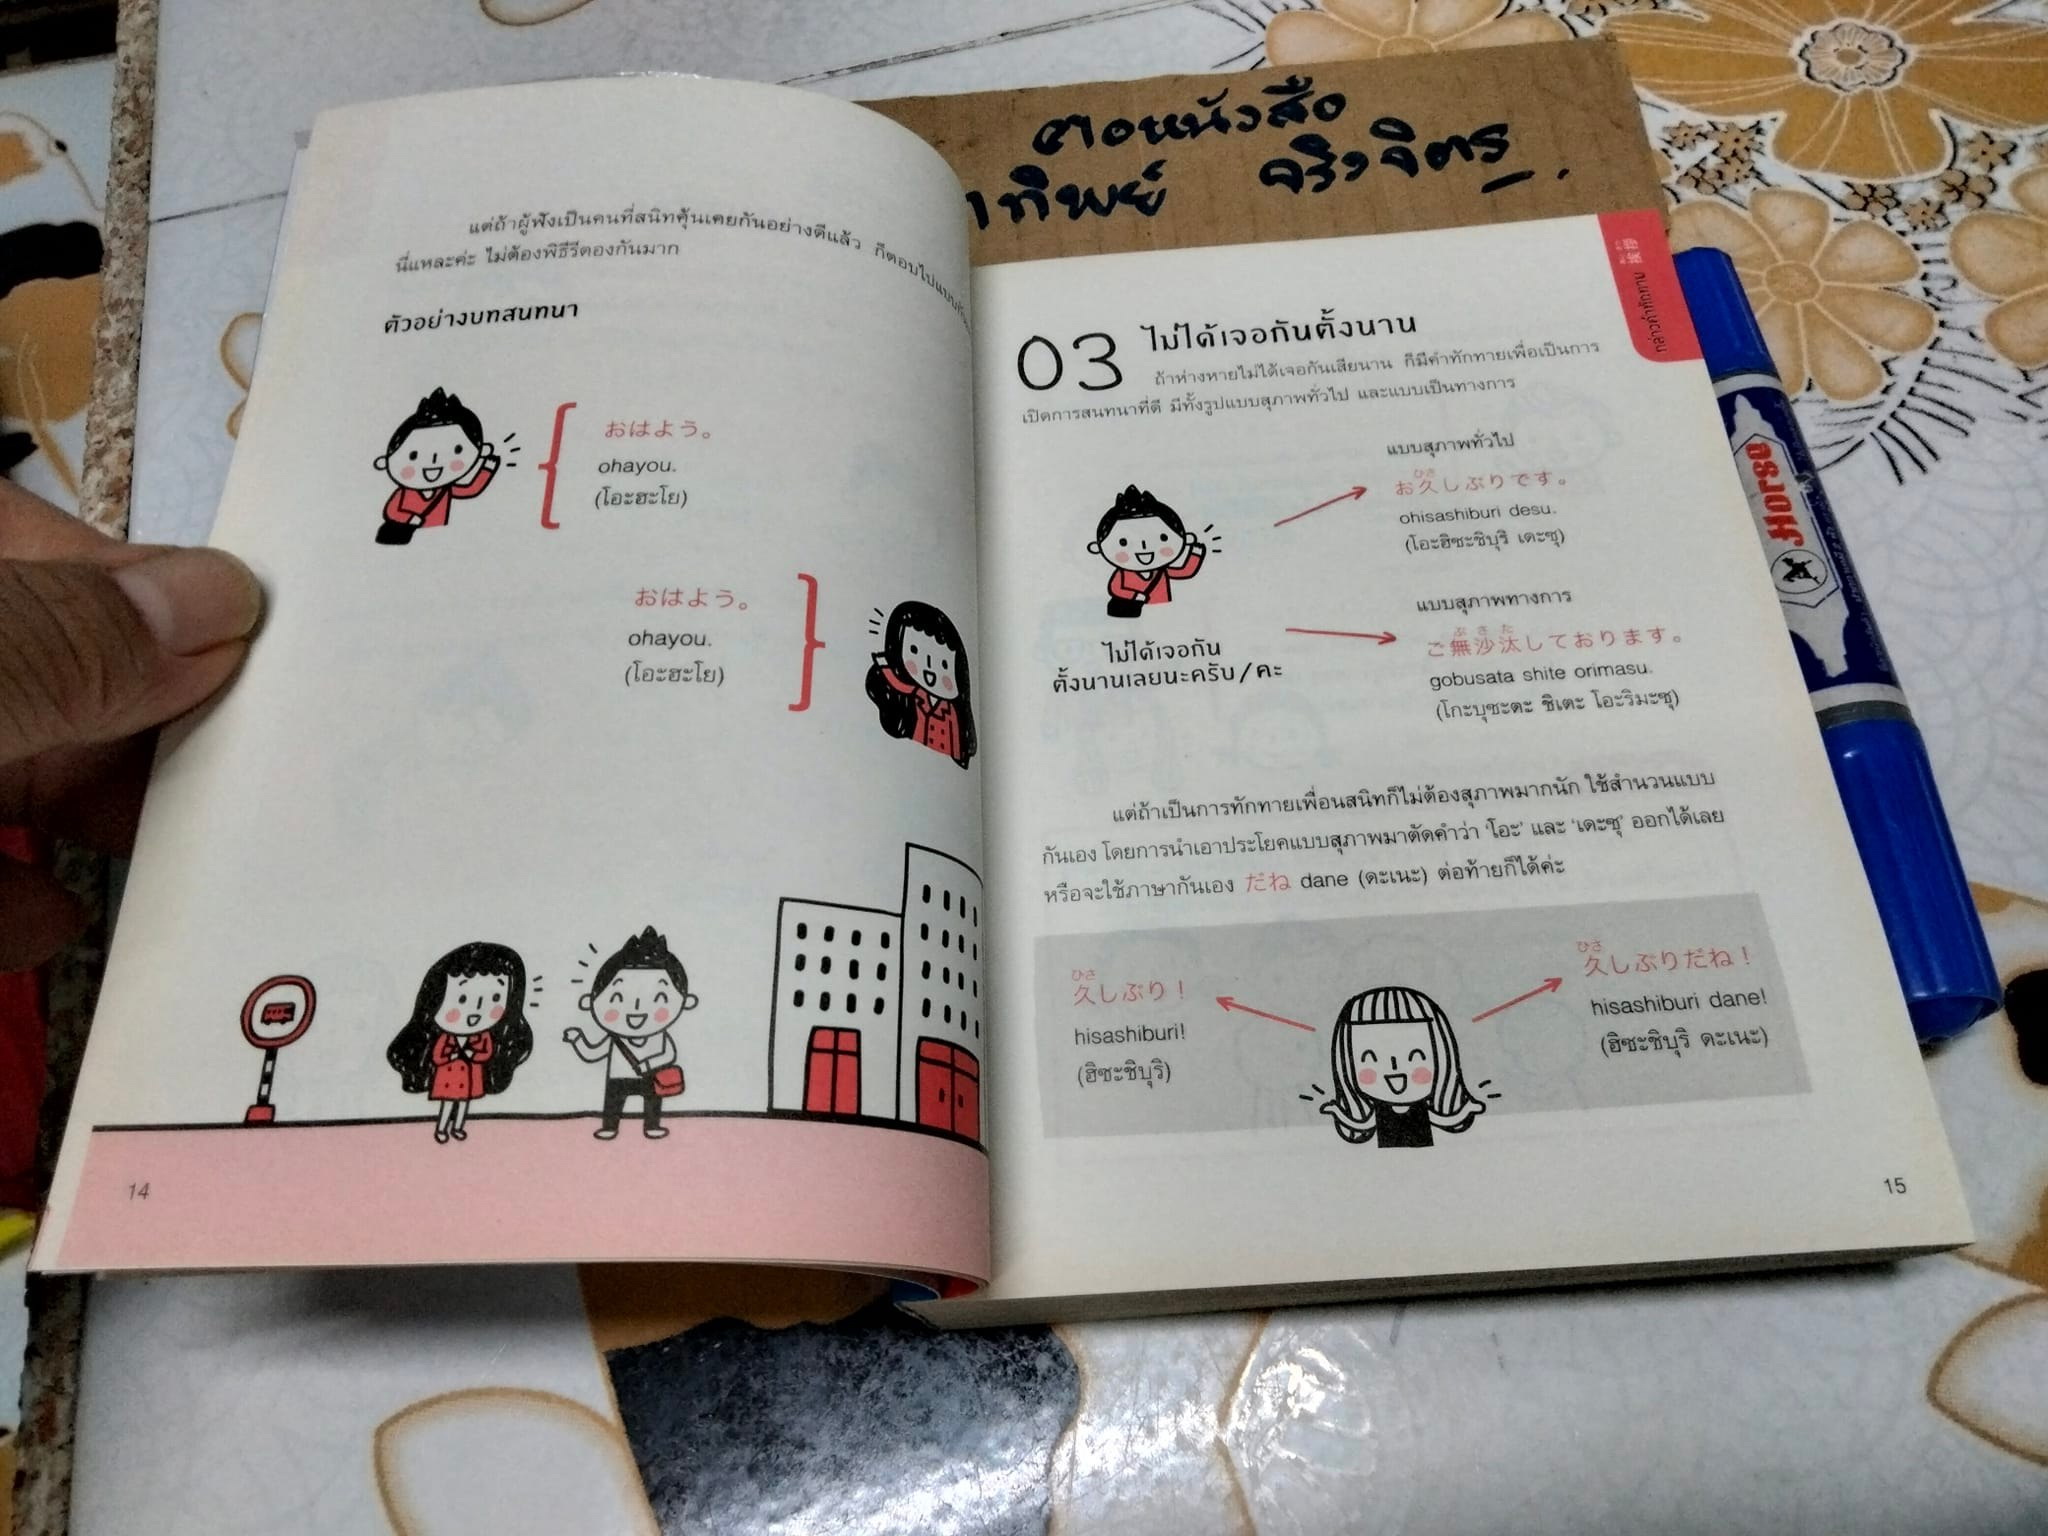 แต่ถ้าผู้ฟังเป็นคนที่สนิทคุ้นเคยกันอย่างดีแล้ว ก็ตอบไปแบบ
นี่แหละค่ะ ไม่ต้องพิธีรีตองกันมาก
ตัวอย่างบทสนทนา
おはよう。
ohayou.
(โอะฮะโย)
おはよう。
ohayou.
(โอะฮะโย)
14
หนังสือ
ทิพย์ จริงจิตร
กล่าวคำทักทาย 挨拶
03 ไม่ได้เจอกันตั้งนาน
ถ้าห่างหายไม่ได้เจอกันเสียนาน ก็มีคำทักทายเพื่อเป็นการ
เปิดการสนทนาที่ดี มีทั้งรูปแบบสุภาพทั่วไป และแบบเป็นทางการ
แบบสุภาพทั่วไป
ひさ
お久しぶりです。
ohisashiburi desu.
(โอะฮิซะชิบุริ เดะซุ)
แบบสุภาพทางการ
ぶさた
ご無沙汰しております。
gobusata shite orimasu.
(โกะบุซะตะ ชิเตะ โอะริมะซุ)
ไม่ได้เจอกัน
ตั้งนานเลยนะครับ/คะ
แต่ถ้าเป็นการทักทายเพื่อนสนิทก็ไม่ต้องสุภาพมากนัก ใช้สำนวนแบบ
กันเอง โดยการนำเอาประโยคแบบสุภาพมาตัดคำว่า 'โอะ' และ 'เดะซุ' ออกได้เลย
หรือจะใช้ภาษากันเอง だね dane (ดะเนะ) ต่อท้ายก็ได้ค่ะ
ひさ
久しぶり！
hisashiburi!
(ฮิซะชิบุริ)
ひさ
久しぶりだね！
hisashiburi dane!
(ฮิซะชิบุริ ดะเนะ)
15
Horse